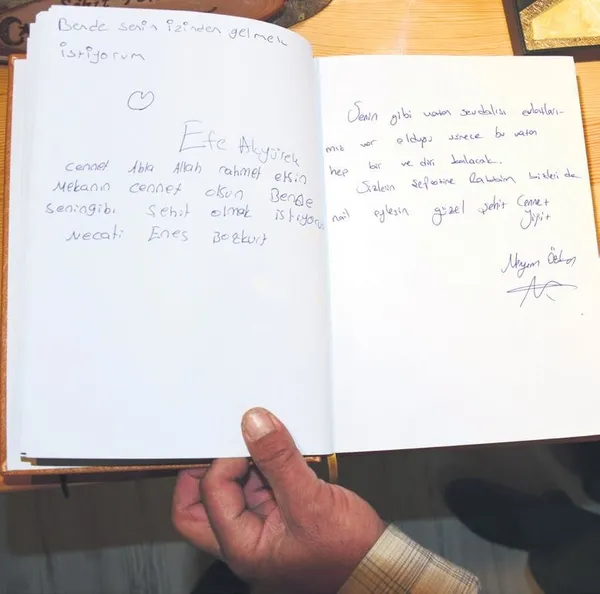 Bende senin izinden gelmek
istiyorum
Efe Akyürek
Cennet Abla Allah rahmet etsin
Mekanın cennet olsun Bende
seningibi şehit olmak istiyorum
Necati Enes Bozkurt
Senin gibi vatan sevdalısı evlatları-
mız var olduğu sürece bu vatan
hep bir ve diri kalacak.
Sizlerin şefaatine Rabbim bizleri de
nail eylesin güzel şehit Cennet
Yiğit